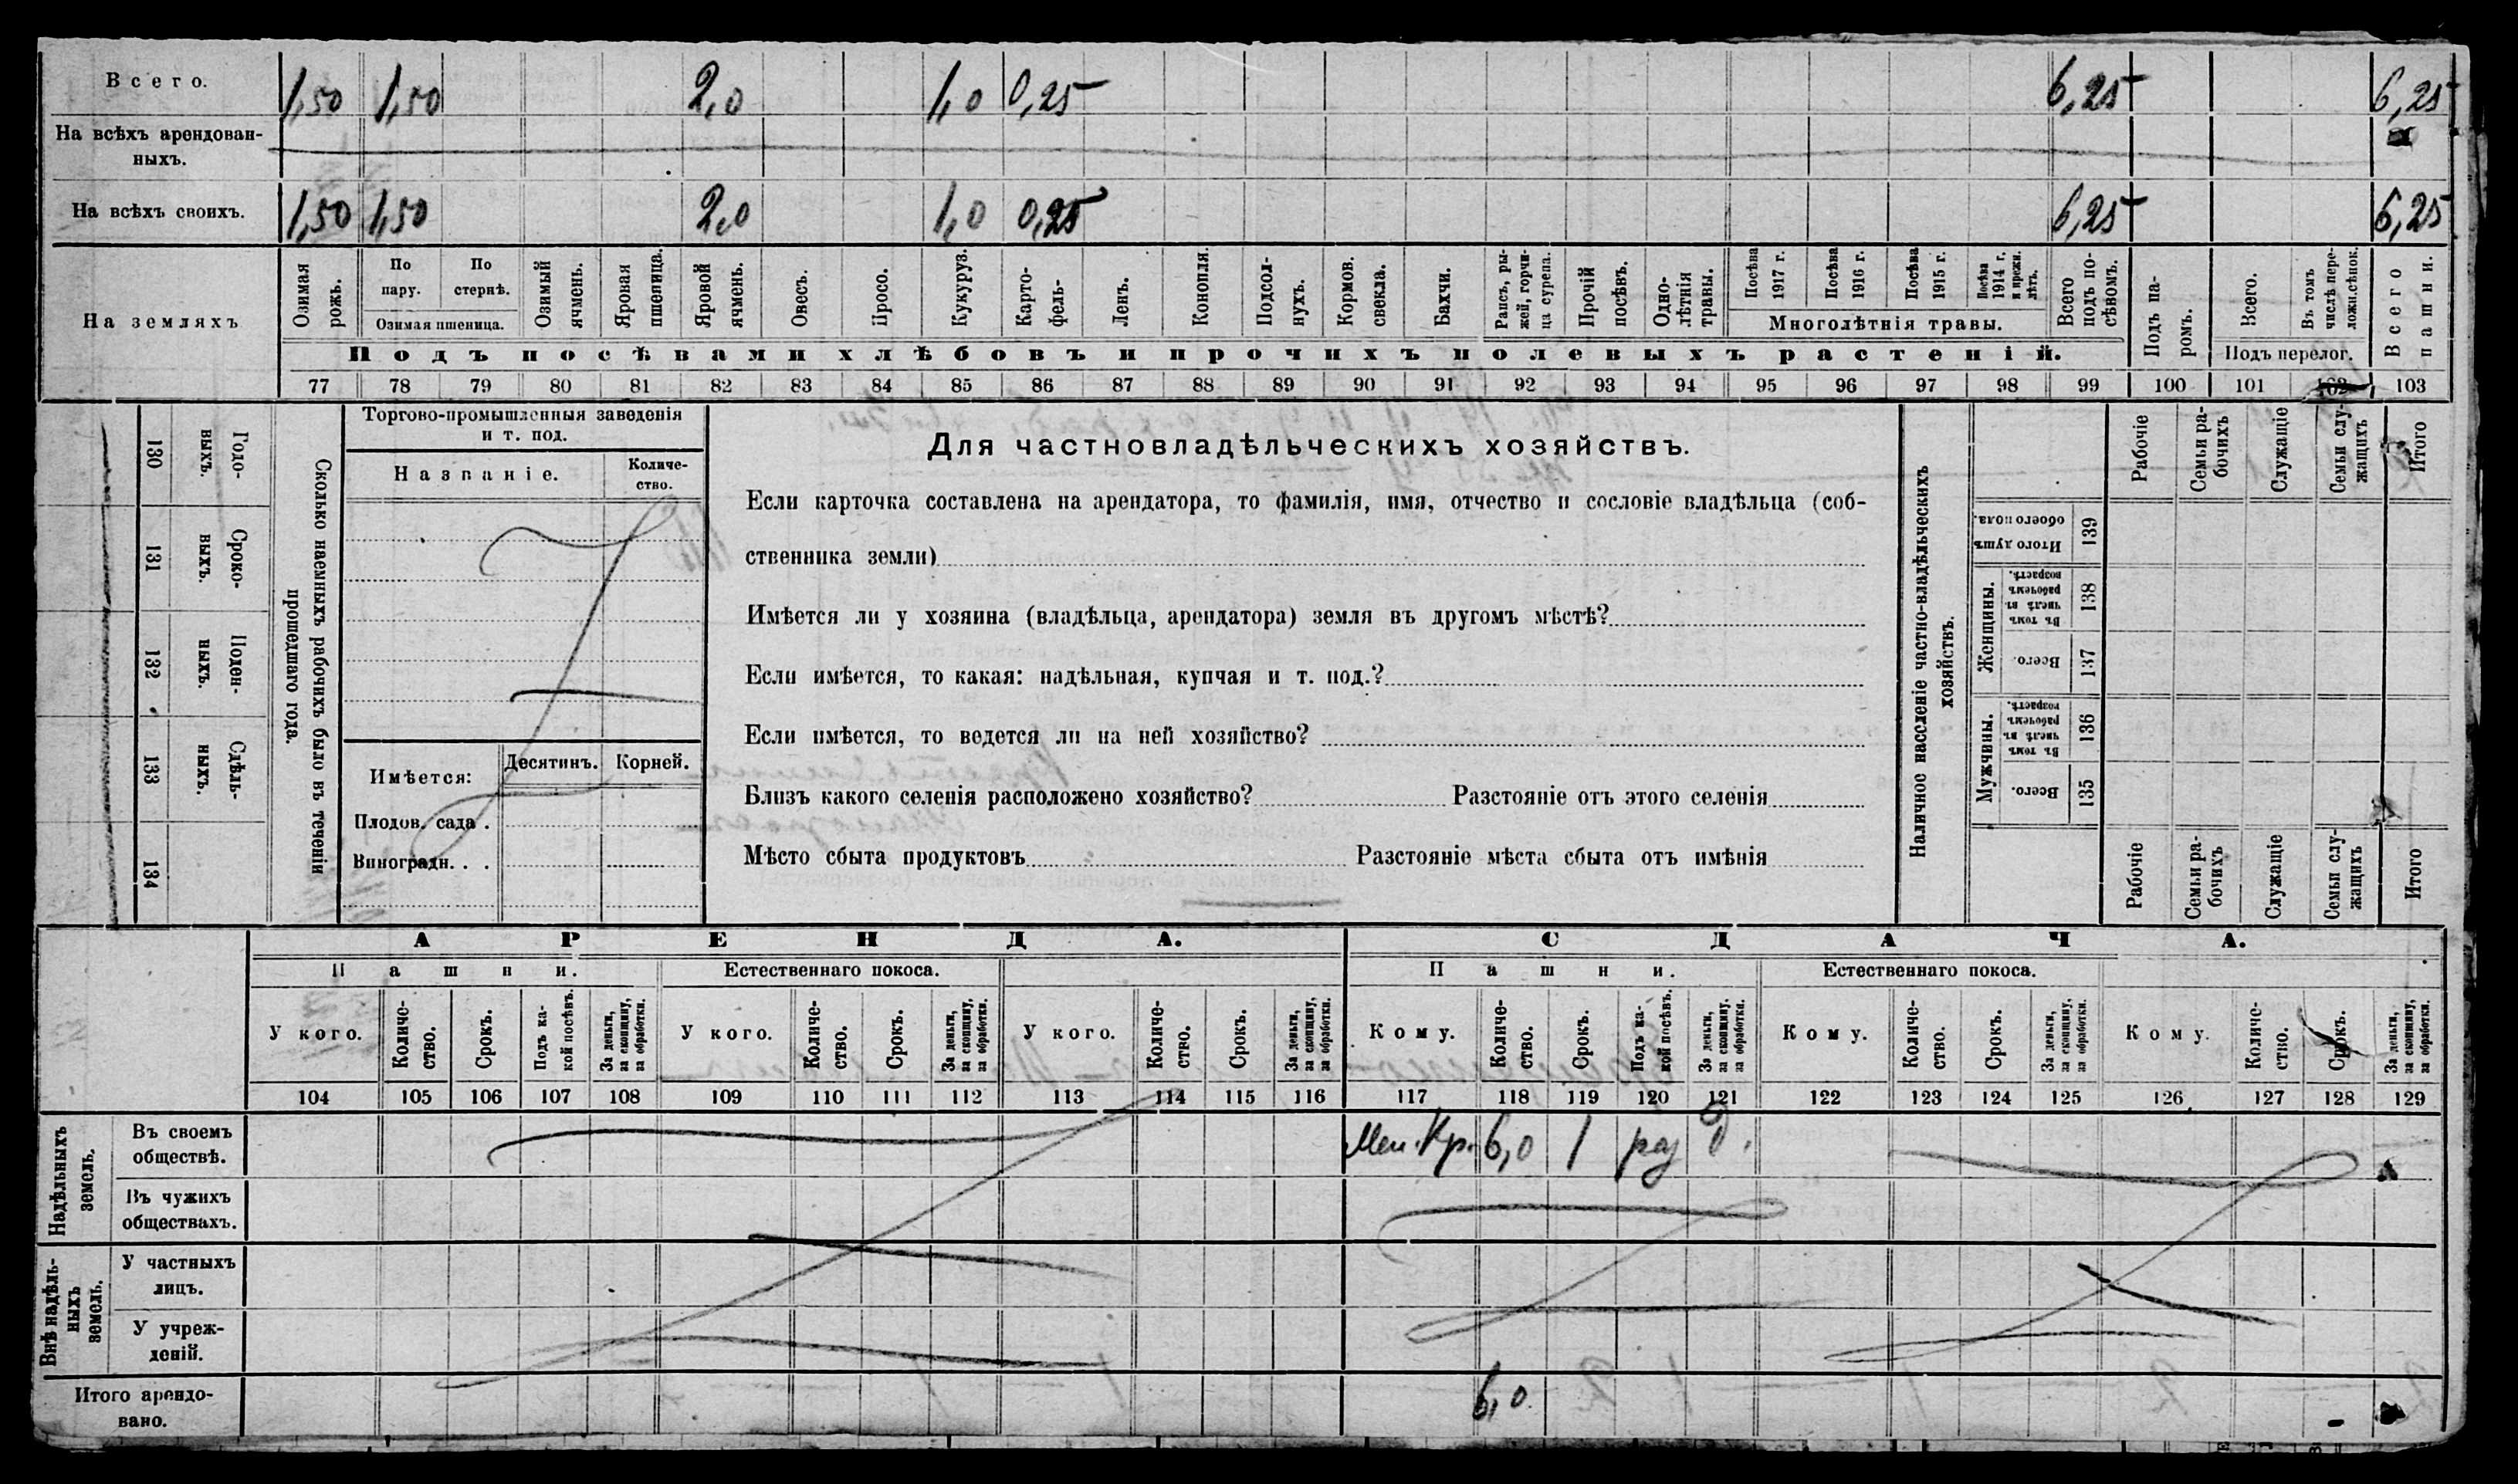 Всего. 1,50 1,50 2,0 1,0 0,25 6,25 6,25
На всѣхъ арендован-
ныхъ.
На всѣхъ своихъ. 1,50 1,50 2,0 1,0 0,25 6,25 6,25
На земляхъ
Озимая рожь.
По пару.
По стернѣ.
Озимая пшеница.
Озимый ячмень.
Яровая пшеница.
Яровой ячмень.
Овесъ.
Просо.
Кукуруз.
Карто-
фель-
Ленъ.
Конопля.
Подсол-
нухъ.
Кормов. свекла.
Бахчи.
Рапсъ, ры-
жей, горчи-
ца сурепа.
Прочій посѣвъ.
Одно-
лѣтнія травы.
Посѣва 1917 г.
Посѣва 1916 г.
Посѣва 1915 г.
Посѣва 1914 г. и прежн. лѣтъ.
Многолѣтнія травы.
Всего подъ по-
сѣвомъ.
Подъ па-
ромъ.
Всего.
Въ томъ числѣ пере-
ложн.сѣнок.
Подъ перелог.
Всего пашни.
Подъ посѣвами хлѣбовъ и прочихъ полевыхъ растеній.
77 78 79 80 81 82 83 84 85 86 87 88 89 90 91 92 93 94 95 96 97 98 99 100 101 102 103
Сколько наемныхъ рабочихъ было въ теченіи
прошедшаго года.
Годо-
выхъ.
130
Сроко-
выхъ.
131
Поден-
ныхъ.
132
Сдѣль-
ныхъ.
133
134
Торгово-промышленныя заведенія
и т. под.
Названіе.
Количе-
ство.
Имѣется:
Десятинъ. Корней.
Плодов. сада .
Виноградн. . .
Для частновладѣльческихъ хозяйствъ.
Если карточка составлена на арендатора, то фамилія, имя, отчество и сословіе владѣльца (соб-
ственника земли)
Имѣется ли у хозяина (владѣльца, арендатора) земля въ другомъ мѣстѣ?
Если имѣется, то какая: надѣльная, купчая и т. под.?
Если имѣется, то ведется ли на ней хозяйство?
Близъ какого селенія расположено хозяйство? Разстояніе отъ этого селенія
Мѣсто сбыта продуктовъ Разстояніе мѣста сбыта отъ имѣнія
Наличное населеніе частно-владѣльческихъ
хозяйствъ.
Рабочіе
Семьи ра-
бочихъ
Служащіе
Семьи слу-
жащихъ
Итого
Итого душъ
обоего пола.
139
Женщины.
Въ томъ числѣ въ рабочемъ возрастѣ.
138
Всего.
137
Мужчины.
Въ томъ числѣ въ рабочемъ возрастѣ.
136
Всего.
135
Рабочіе
Семьи ра-
бочихъ
Служащіе
Семьи слу-
жащихъ
Итого
АРЕНДА. СДАЧА.
Пашни. Естественнаго покоса. Пашни. Естественнаго покоса.
У кого.
Количе-
ство.
Срокъ.
Подъ ка-
кой посѣвъ.
За деньги, за скопщину, за обработки.
У кого.
Количе-
ство.
Срокъ.
За деньги, за скопщину, за обработки.
У кого.
Количе-
ство.
Срокъ.
За деньги, за скопщину, за обработки.
Кому.
Количе-
ство.
Срокъ.
Подъ ка-
кой посѣвъ.
За деньги, за скопщину, за обработки.
Кому.
Количе-
ство.
Срокъ.
За деньги, за скопщину, за обработки.
Кому.
Количе-
ство.
Срокъ.
За деньги, за скопщину, за обработки.
104 105 106 107 108 109 110 111 112 113 114 115 116 117 118 119 120 121 122 123 124 125 126 127 128 129
Надѣльныхъ
земель.
Въ своемъ
обществѣ. Мен. Кр. 6,0 1 раз д.
Въ чужихъ
обществахъ.
Внѣ надѣль-
ныхъ
земель.
У частныхъ
лицъ.
У учреж-
деній.
Итого арендо-
вано. 6,0